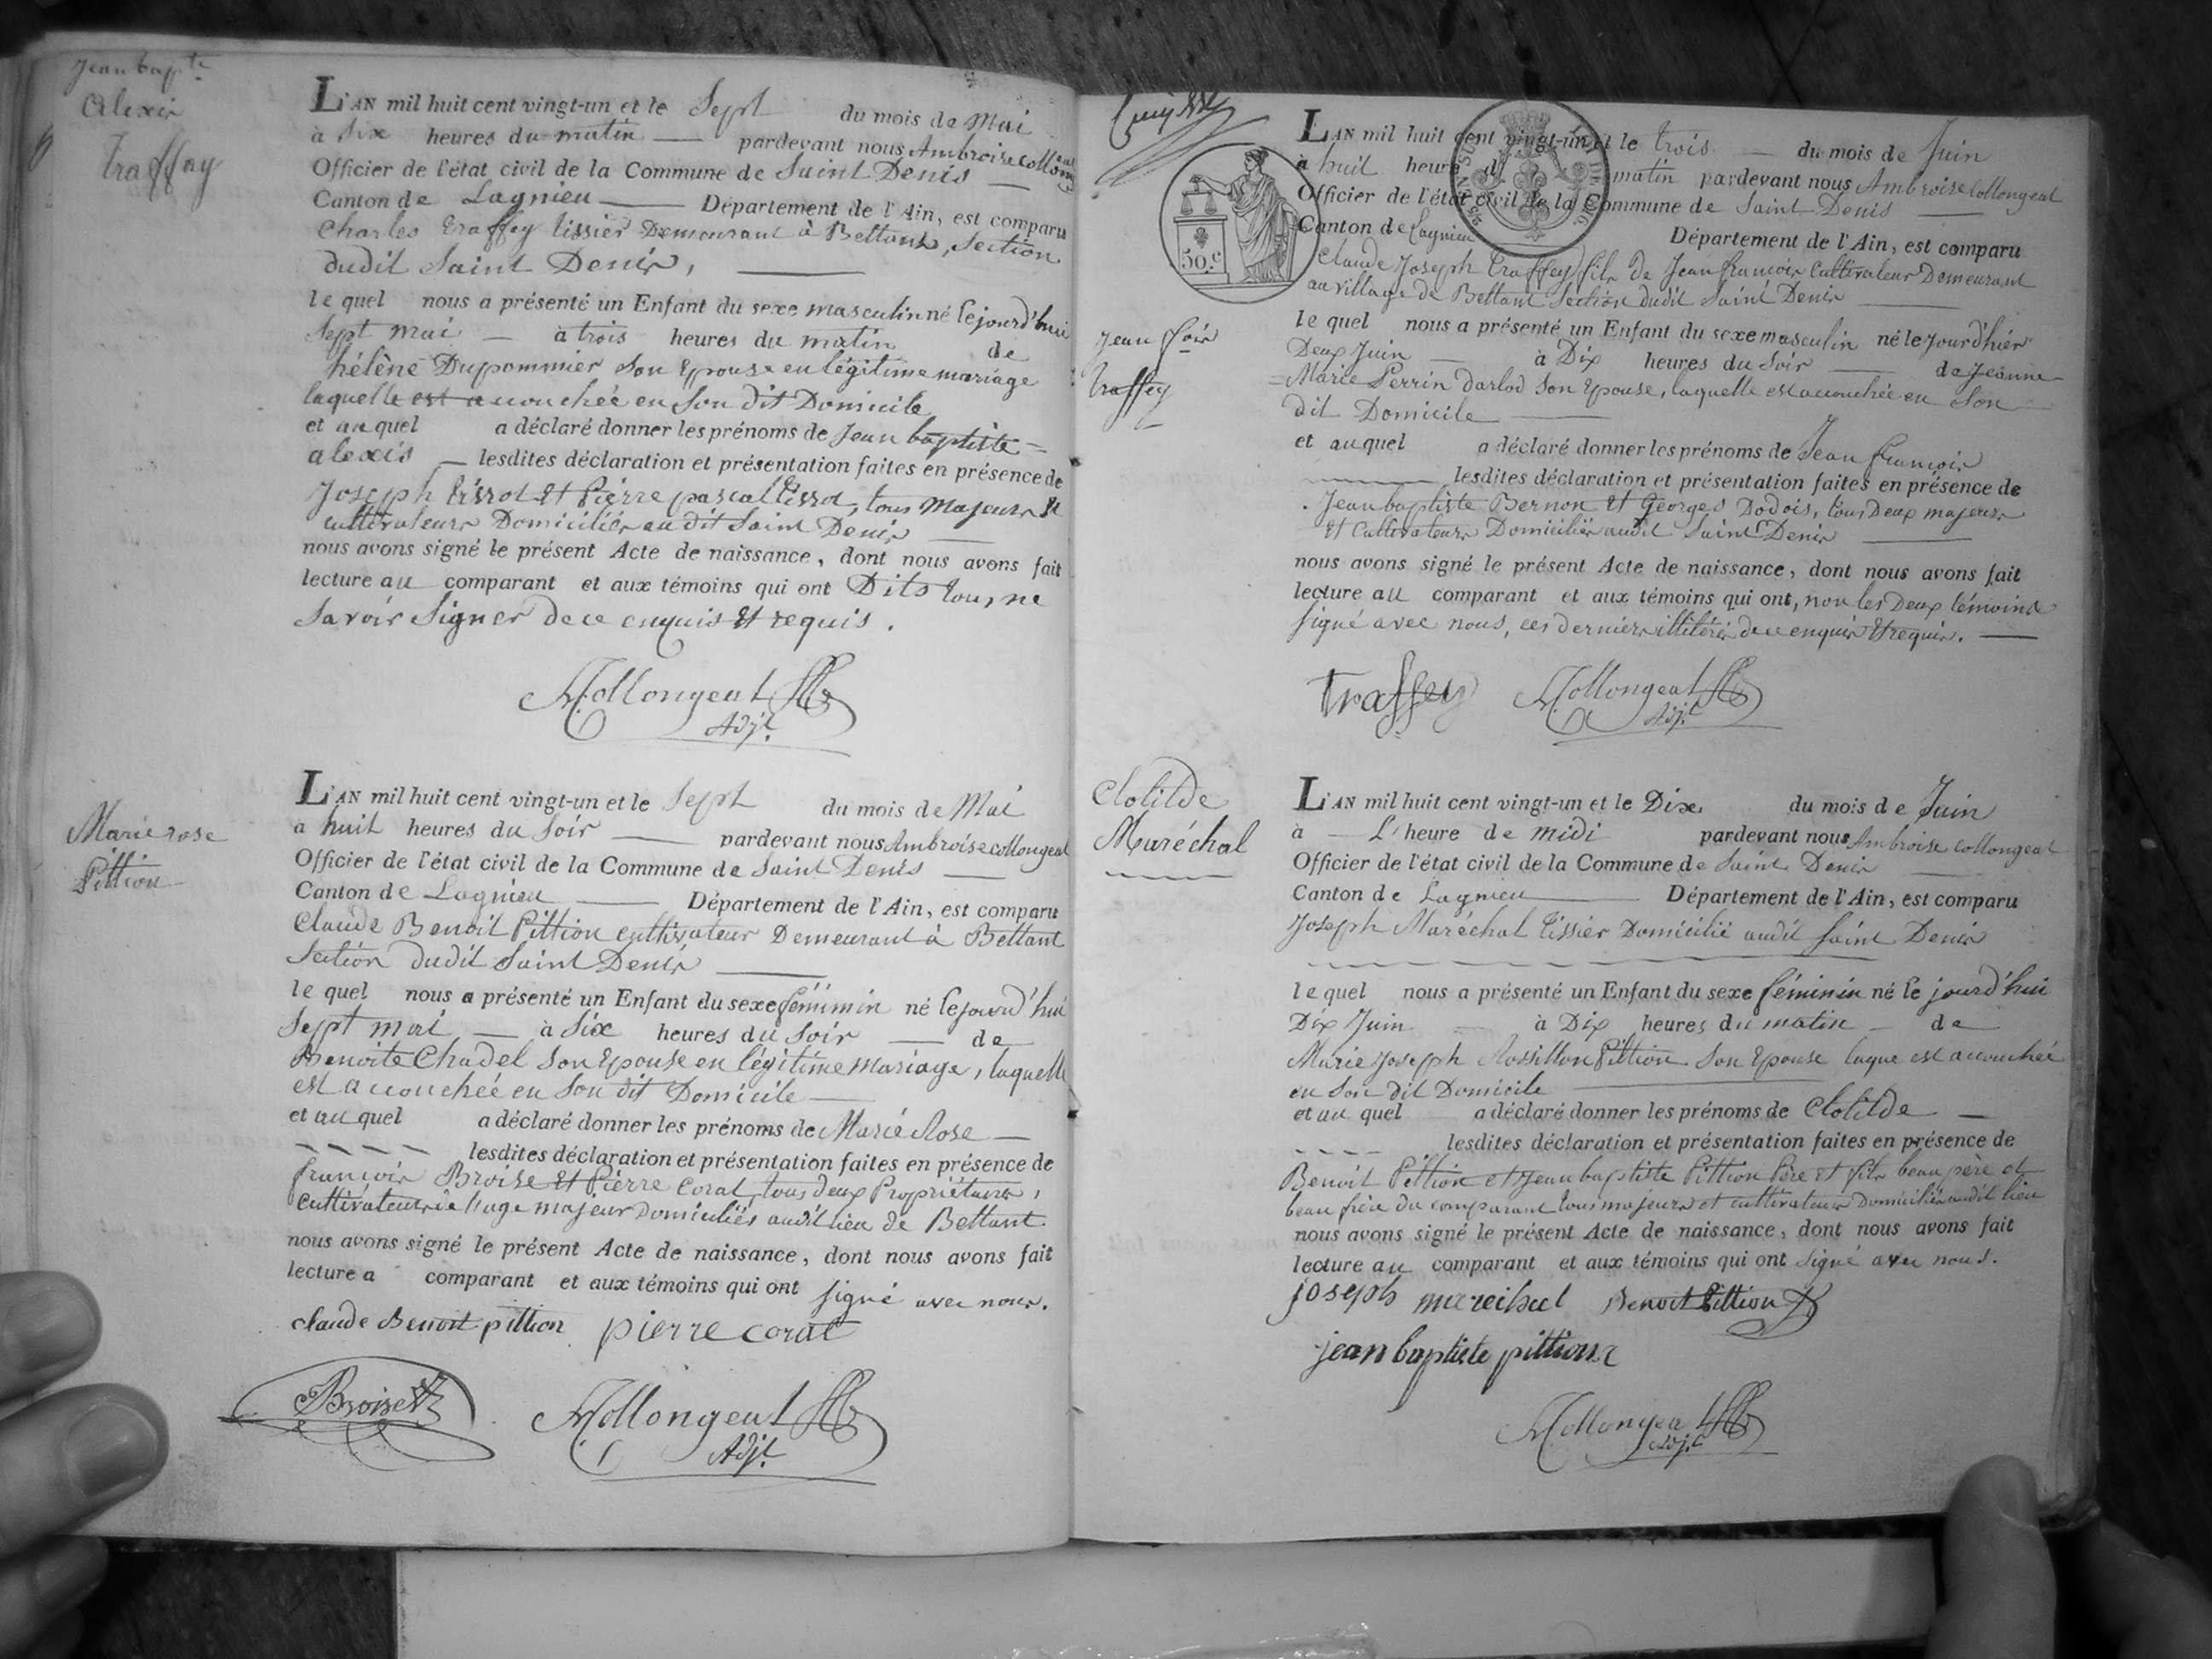 Jean bapte
alexis
traffay
L'AN mil huit cent vingt-un et le Sept du mois de Mai
à Six heures du matin pardevant nous Ambroise Collongeat
Officier de l'état civil de la Commune de Saint Denis
Canton de Lagnieu Département de l'Ain, est comparu
Charles traffey tissier Demeurant à Bettant, Section
dudit Saint Denis,
le quel nous a présenté un Enfant du sexe masculin né le jourd'hui
Sept mai à trois heures du matin de
hélène Dupommier Son Epouse en légitime mariage
laquelle est accouchée en Son dit Domicile
et au quel a déclaré donner les prénoms de Jean baptiste
alexis lesdites déclaration et présentation faites en présence de
Joseph tissot et Pierre pascal tissot, tous majeurs et
cultivateurs Domiciliés au dit Saint Denis
nous avons signé le présent Acte de naissance, dont nous avons fait
lecture au comparant et aux témoins qui ont Dits tous ne
Savoir Signer de ce enquis et requis.
Collongeat
Adjt.
Marie rose
Pittion
L'AN mil huit cent vingt-un et le Sept du mois de Mai
à huit heures du Soir pardevant nous Ambroise Collongeat
Officier de l'état civil de la Commune de Saint Denis
Canton de Lagnieu Département de l'Ain, est comparu
Claude Benoit Pittion cultivateur Demeurant à Bettant
Section dudit Saint Denis
le quel nous a présenté un Enfant du sexe féminin né le jourd'hui
Sept mai à Six heures du Soir de
Benoite Chadel Son Epouse en légitime mariage, laquelle
est accouchée en Son dit Domicile
et au quel a déclaré donner les prénoms de Marie Rose
lesdites déclaration et présentation faites en présence de
françois Broise et Pierre Corat, tous deux Propriétaires,
cultivateurs de l'age majeur Domiciliés audit lieu de Bettant
nous avons signé le présent Acte de naissance, dont nous avons fait
lecture a comparant et aux témoins qui ont signé avec nous.
claude Benoit pittion pierre corat
Broise
Collongeat
Adjt.
L'AN mil huit cent vingt-un et le trois du mois de Juin
à huit heure d matin pardevant nous Ambroise Collongeat
Officier de l'état civil de la Commune de Saint Denis
Canton de Lagnieu Département de l'Ain, est comparu
50.c
Claude Joseph traffey fils de Jean françois Cultivateur Demeurant
au village de Bettant Section dudit Saint Denis
Jean fois
traffey
le quel nous a présenté un Enfant du sexe masculin né le Jour d'hier
Deux Juin à Dix heures du Soir de Jeanne
Marie Perrin darlod Son Epouse, laquelle est accouchée en Son
dit Domicile
et au quel a déclaré donner les prénoms de Jean françois
lesdites déclaration et présentation faites en présence de
Jean baptiste Bernon et Georges Dodois, tous Deux majeurs
et Cultivateurs Domiciliés audit Saint Denis
nous avons signé le présent Acte de naissance, dont nous avons fait
lecture au comparant et aux témoins qui ont, non les Deux témoins
signé avec nous, ces derniers illitérés de ce enquis et requis.
traffey Collongeat
Adjt.
Clotilde
Maréchal
L'AN mil huit cent vingt-un et le Dix du mois de Juin
à L'heure de midi pardevant nous Ambroise Collongeat
Officier de l'état civil de la Commune de Saint Denis
Canton de Lagnieu Département de l'Ain, est comparu
Joseph Maréchal tissier Domicilié audit Saint Denis
le quel nous a présenté un Enfant du sexe féminin né le jourd'hui
Dix Juin à Dix heures du matin de
Marie Joseph Rossillon Pittion Son Epouse laque est accouchée
en Son dit Domicile
et au quel a déclaré donner les prénoms de Clotilde
lesdites déclaration et présentation faites en présence de
Benoit Pittion et Jean baptiste Pittion Père et fils beau père et
beau frère du comparant tous majeurs et cultivateurs Domiciliés audit lieu
nous avons signé le présent Acte de naissance, dont nous avons fait
lecture au comparant et aux témoins qui ont signé avec nous.
joseph marechal Benoit Pittion
jean baptiste pittion
Collongeat
adjt.